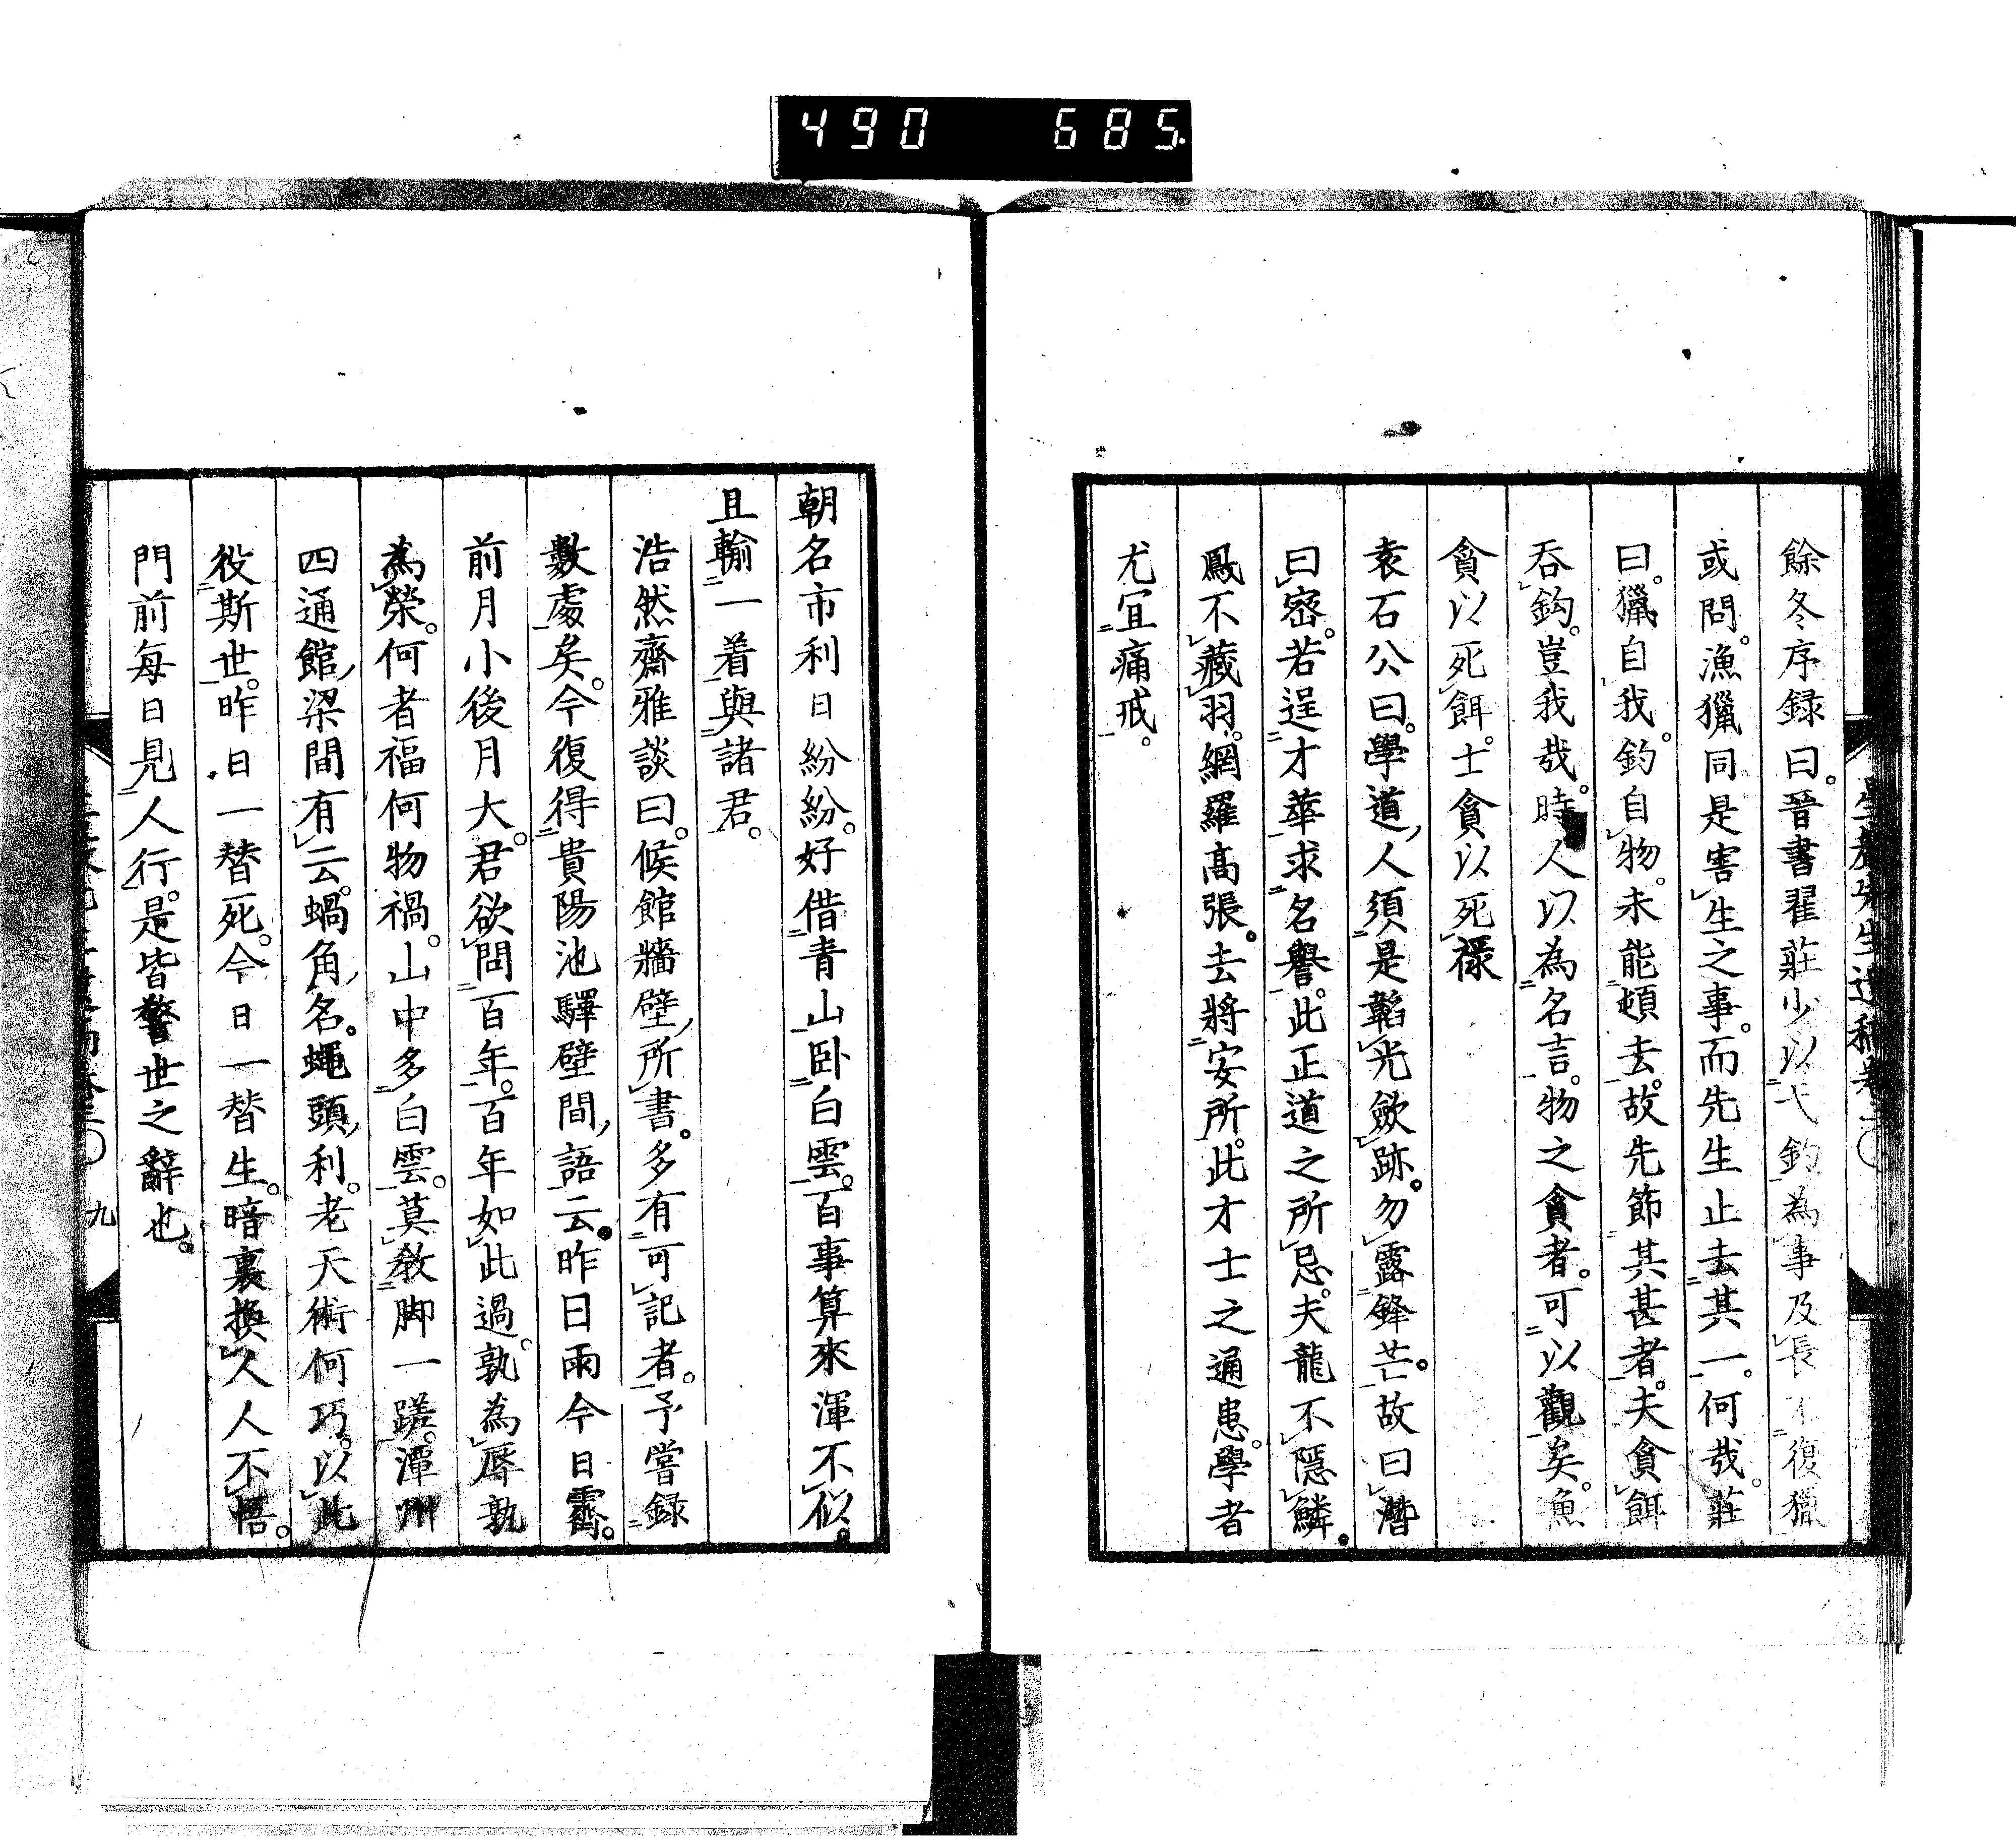 490 685
餘冬序録曰。晉書翟莊少以弋釣為事及長不復獵
或問。漁獵同是害生之事。而先生止去其一。何哉。莊
曰。獵自我。釣自物。未能頓去。故先節其甚者。夫貪餌
吞鈎。豈我哉。時人以為名言。物之貪者。可以觀矣。魚
貪以死餌。士貪以死祿
袁石公曰。學道人須是韜光歛跡。勿露鋒芒。故曰潛
曰密。若逞才華求名譽。此正道之所忌。夫龍不隱鱗。
鳳不藏羽。網羅高張。去將安所。此才士之通患。學者
尤宜痛戒。
朝名市利日紛紛。好借青山卧白雲。百事算來渾不似。
且輸一着與諸君。
浩然齋雅談曰。候館牆壁所書。多有可記者。予嘗録
數處矣。今復得貴陽池驛壁間語云。昨日雨今日霽。
前月小後月大。君欲問百年。百年如此過。孰為辱孰
為榮。何者福何物禍。山中多白雲。莫教脚一蹉。潭州
四通館梁間有云。蝸角名。蠅頭利。老天術何巧。以此
役斯世。昨日一替死。今日一替生。暗裏換人人不悟。
門前每日見人行。是皆警世之辭也。
九